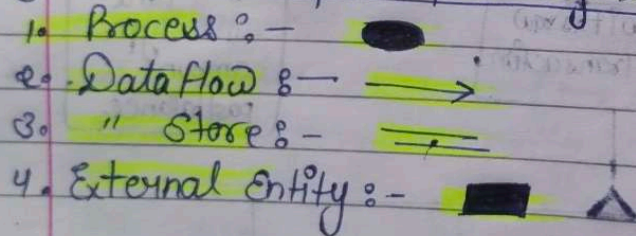 1. Process :-
2. Data flow :-
3. " Store :-
4. External Entity :-